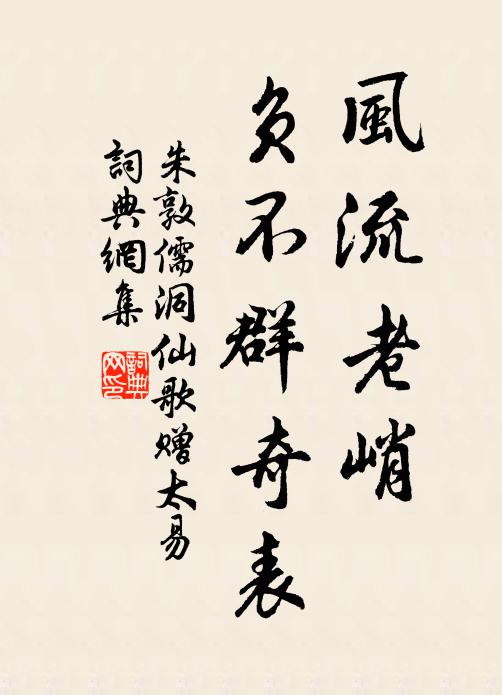 風流老峭
負不群奇表
朱敦儒洞仙歌贈太易
詞典網集
詞典
网印